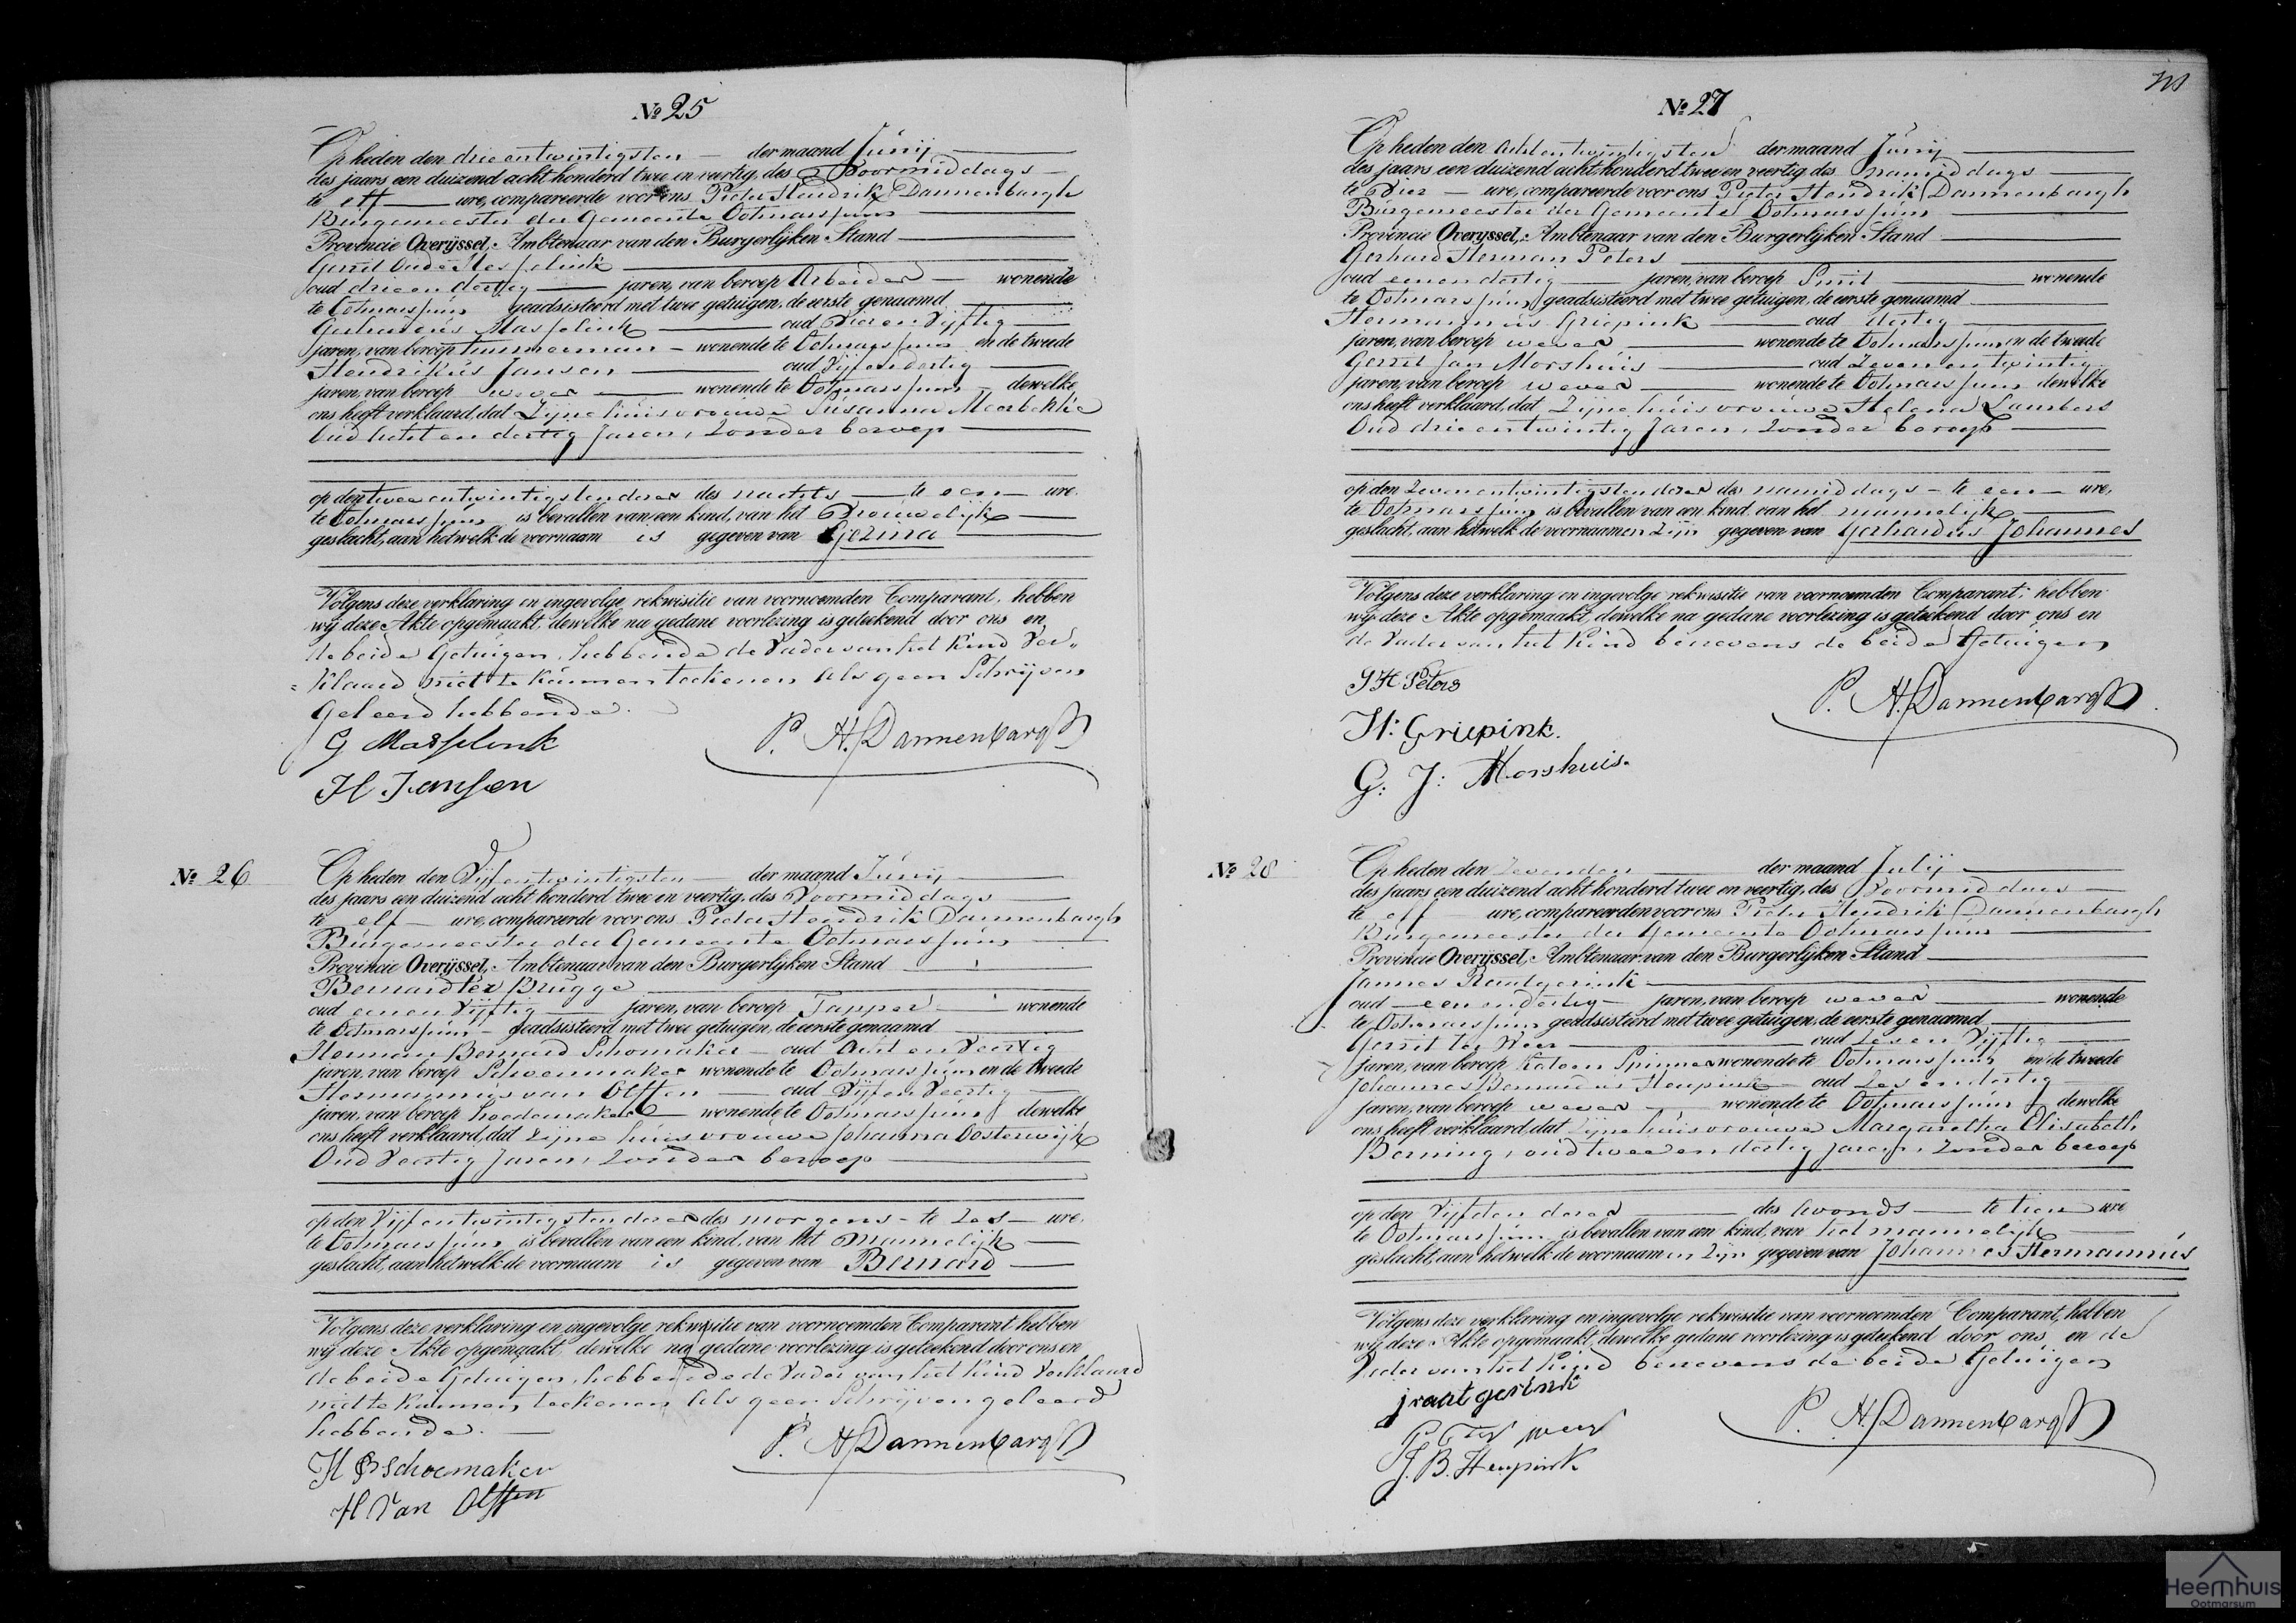 № 25
Op heden den drie entwintigsten der maand Junij
des jaars een duizend acht honderd twee en veertig, des Voormiddags
te elf ure, compareerde voor ons Pieter Hendrik Dannenbargh
Burgemeester der Gemeente Ootmarssum
Provincie Overijssel, Ambtenaar van den Burgerlijken Stand
Gerrit Oude
oud drie en dertig jaren, van beroep Arbeider wonende
te Ootmarssum geadsisteerd met twee getuigen, de eerste genaamd
Gerhardus Masselink oud Vier en Vijftig
jaren, van beroep timmerman wonende te Ootmarssum en de tweede
Hendrikus Jansen oud Vijf en dertig
jaren, van beroep wever wonende te Ootmarssum dewelke
ons heeft verklaard, dat Zijne huisvrouwe Susanna
Oud Acht en dertig Jaren, Zonder beroep
op den twee entwintigsten dezer des nachts te een ure.
te Ootmarssum is bevallen van een kind, van het Vrouwelijk
geslacht, aan hetwelk de voornaam is gegeven van Gezina
Volgens deze verklaring en ingevolge rekwisitie van voornoemden Comparant, hebben
wij deze Akte opgemaakt, dewelke na gedane voorlezing is geteekend door ons en
de beide Getuigen, hebbende de Vader van het Kind Ver„
=klaard niet te kunnen teekenen Als geen Schrijven
Geleerd hebbende.
G Masselink
P. H. Dannenbargh
H Jansen
№ 26
Op heden den Vijf entwintigsten der maand Junij
des jaars een duizend acht honderd twee en veertig, des Voormiddags
te elf ure, compareerde voor ons Pieter Hendrik Dannenbargh
Burgemeester der Gemeente Ootmarssum
Provincie Overijssel, Ambtenaar van den Burgerlijken Stand
Bernard ter Brugge
oud een en Vijftig jaren, van beroep Tapper wonende
te Ootmarssum geadsisteerd met twee getuigen, de eerste genaamd
Herman Bernard Schomaker oud Acht en Veertig
jaren, van beroep Schoenmaker wonende te Ootmarssum en de tweede
Hermannus van Olffen oud Vijf en Veertig
jaren, van beroep hoedemaker wonende te Ootmarssum dewelke
ons heeft verklaard, dat zijne huisvrouwe Johanna Oosterwijk
Oud Veertig Jaren, Zonder beroep
op den Vijf entwintigsten dezer des morgens te Zes ure.
te Ootmarssum is bevallen van een kind, van het Mannelijk
geslacht, aan hetwelk de voornaam is gegeven van Bernard
Volgens deze verklaring en ingevolge rekwisitie van voornoemden Comparant hebben
wij deze Akte opgemaakt, dewelke na gedane voorlezing is geteekend door ons en
de beide Getuigen, hebbende de Vader van het Kind Verklaard
niet te kunnen teekenen Als geen Schrijven geleerd
hebbende.
P. H. Dannenbargh
H B Schoemaker
H Van Olffen
№ 27
Op heden den Achtentwintigsten der maand Junij
des jaars een duizend acht honderd twee en veertig des namiddags
te Vier ure, compareerde voor ons Pieter Hendrik Dannenbargh
Burgemeester der Gemeente Ootmarssum
Provincie Overijssel, Ambtenaar van den Burgerlijken Stand
Gerhard Herman Peters
oud een en dertig jaren, van beroep Smit wonende
te Ootmarssum geadsisteerd met twee getuigen, de eerste genaamd
Hermannus Griepink oud dertig
jaren, van beroep wever wonende te Ootmarssum en de tweede
Gerrit Jan Morshuis oud Zeven en twintig
jaren, van beroep wever wonende te Ootmarssum dewelke
ons heeft verklaard, dat Zijne huisvrouwe Helena Lambers
Oud drie entwintig Jaren, Zonder beroep
op den Zeven entwintigsten dezer des namiddags te een ure,
te Ootmarssum is bevallen van een kind, van het mannelijk
geslacht, aan hetwelk de voornaamen Zijn gegeven van Gerhardus Johannes
Volgens deze verklaring en ingevolge rekwisitie van voornoemden Comparant, hebben
wij deze Akte opgemaakt, dewelke na gedane voorlezing is geteekend door ons en
de Vader van het Kind benevens de beide Getuigen
G H Peters
P. H. Dannenbargh
H: Griepink.
G: J: Morshuis.
№ 28
Op heden den Zevenden der maand Julij
des jaars een duizend acht honderd twee en veertig, des Voormiddags
te elf ure, compareerden voor ons Pieter Hendrik Dannenbargh
Burgemeester der Gemeente Ootmarssum
Provincie Overijssel, Ambtenaar van den Burgerlijken Stand
Jannes Raatgerink
oud een en dertig jaren, van beroep wever wonende
te Ootmarssum geadsisteerd met twee getuigen, de eerste genaamd
Gerrit ter Weer oud Zes en Vijftig
jaren, van beroep Katoen Spinner wonende te Ootmarssum en de tweede
Johannes Bernardus Heupink oud Zes en dertig
jaren, van beroep wever wonende te Ootmarssum dewelke
ons heeft verklaard, dat Zijne huisvrouwe Margaretha Elisabeth
Berning, oud twee en dertig jaren, Zonder beroep
op den Vijfden dezer des Avonds te tien ure
te Ootmarssum is bevallen van een kind, van het mannelijk
geslacht, aan hetwelk de voornaamen Zijn gegeven van Johannes Hermannus
Volgens deze verklaring en ingevolge rekwisitie van voornoemden Comparant, hebben
wij deze Akte opgemaakt, dewelke gedane voorlezing is geteekend door ons en de
Vader van het Kind benevens de beide Getuigen
j raatgerink
P. H. Dannenbargh
G Ter weer
J. B. Heupink
Heemhuis
Ootmarsum